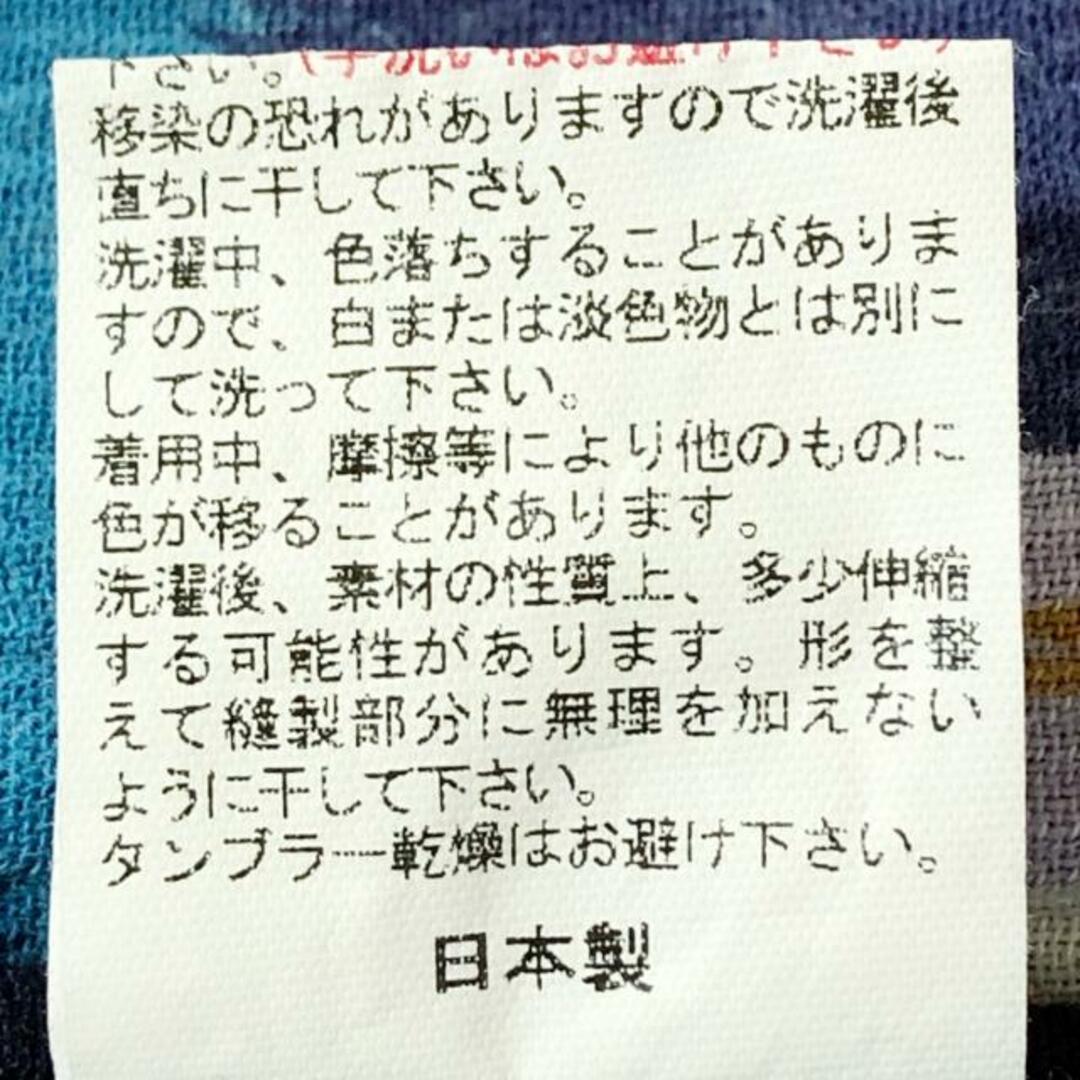 下さい。(手洗いはお避け下さい)
移染の恐れがありますので洗濯後
直ちに干して下さい。
洗濯中、色落ちすることがありま
すので、白または淡色物とは別に
して洗って下さい。
着用中、摩擦等により他のものに
色が移ることがあります。
洗濯後、素材の性質上、多少伸縮
する可能性があります。形を整
えて縫製部分に無理を加えない
ように干して下さい。
タンブラー乾燥はお避け下さい。
日本製